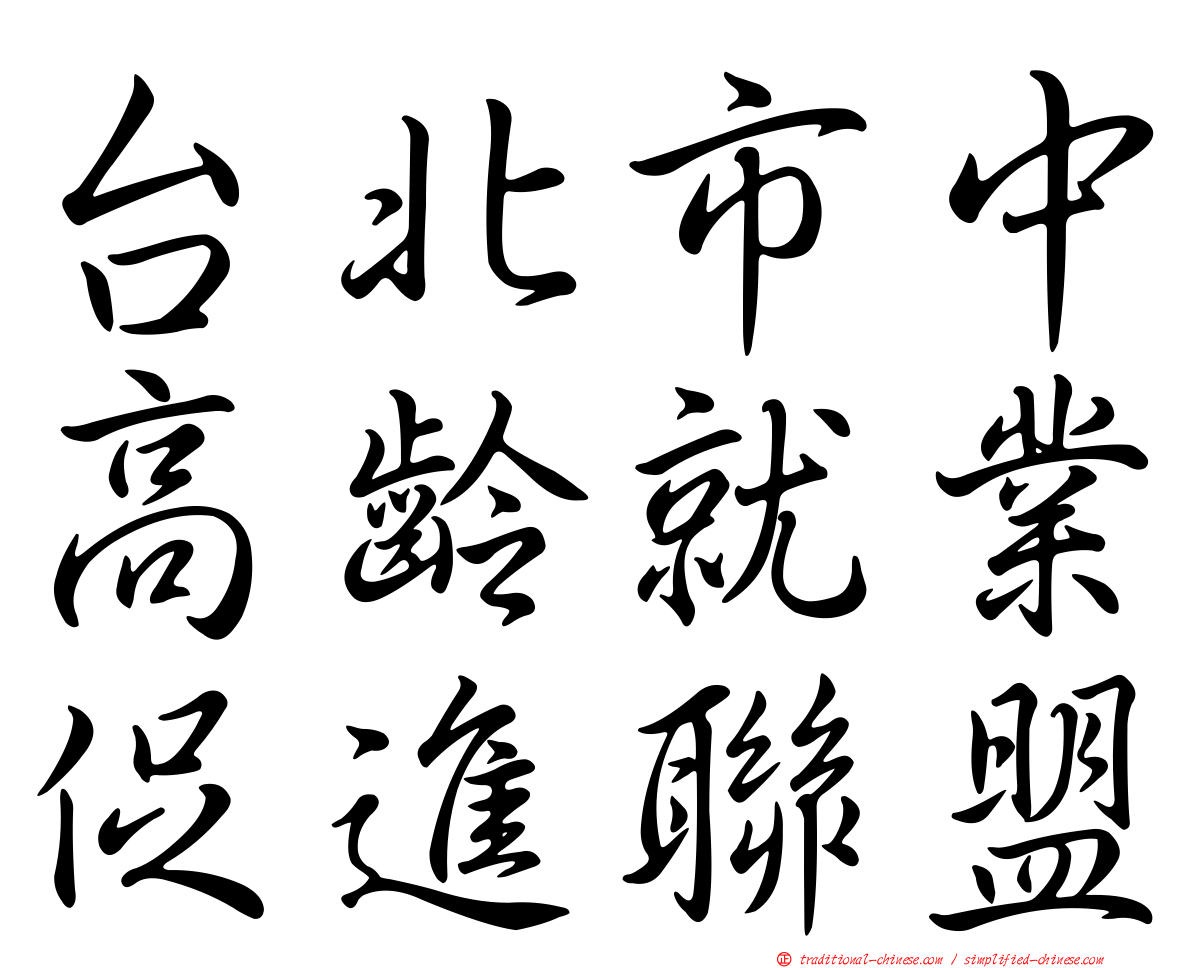 台北市中
高齡就業
促進聯盟
正 traditional-chinese.com / simplified-chinese.com